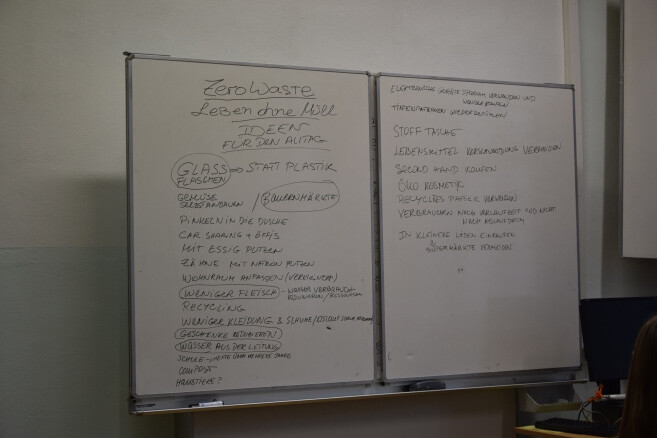 Zero Waste
Leben ohne Müll
IDEEN
FÜR DEN ALLTAG
GLASS FLASCHEN => STATT PLASTIK
GEMÜSE SELBSTANBAUEN / BAUERNMÄRKTE
PINKELN IN DIE DUSCHE
CAR SHARING + ÖFFIS
MIT ESSIG PUTZEN
ZÄHNE MIT NATRON PUTZEN
WOHNRAUM ANPASSEN
WENIGER FLEISCH - WASSER VERBRAUCH
RECYCLING
WENIGER KLEIDUNG & SCHUHE
GESCHENKE REDUZIEREN
WASSER AUS DER LEITUNG
SCHULE - HEFTE ÜBER MEHRERE JAHRE
COMPOST
HAUSTIERE?
ELEKTRONISCHE GERÄTE SPARSAM VERWENDEN UND
WIEDERFÜLLEN
STOFF TASCHE
LEBENSMITTEL VERSCHWENDUNG VERMEIDEN
SECOND HAND KAUFEN
ÖKO KOSMETIK
RECYCLTES PAPIER
VERBRAUCHEN NACH VERLAUFZEIT UND NICHT
NACH
IN KLEINERE LÄDEN EINKAUFEN
SUPERMÄRKTE VERMEIDEN